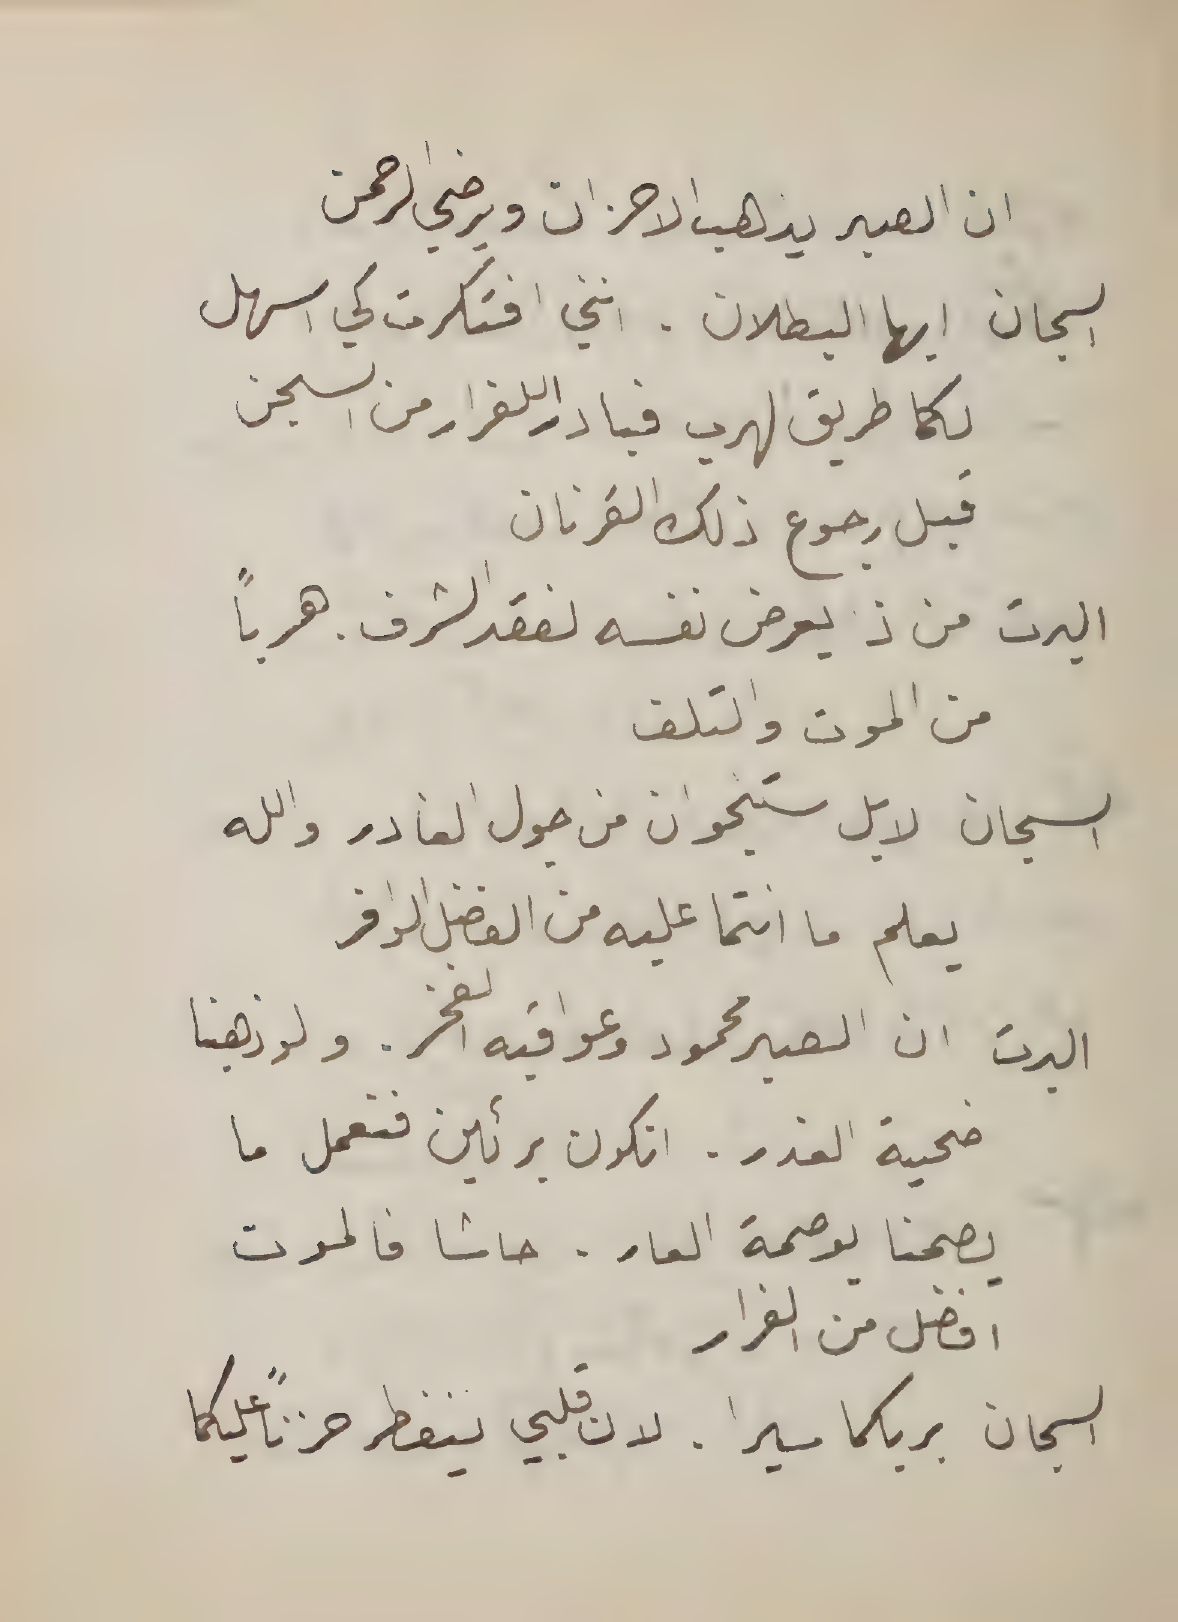 ان الصبر يذهب الاحزان ويرضي الرحمن
السجان ايها البطلان . انني افتكرت كي اسهل
لكما طريق الهرب فبادرا للفرار من السجن
قبل رجوع ذلك القرنان
البرت من ذ يعرض نفسه لفقد الشرف . هرباً
من الموت والتلف
السجان لا بل ستنجوان من جول الغادر والله
يعلم ما انتما عليه من الفضل الوافر
البرت ان الصبر محمود وعواقبه الفخر . ولو ذهبنا
ضحية الغدر . انكون برئين فنعمل ما
يصمنا بوصمة العار . حاشا فالموت
افضل من الفرار
السجان بربكما سيرا . لان قلبي ينفطر حزناً عليكما